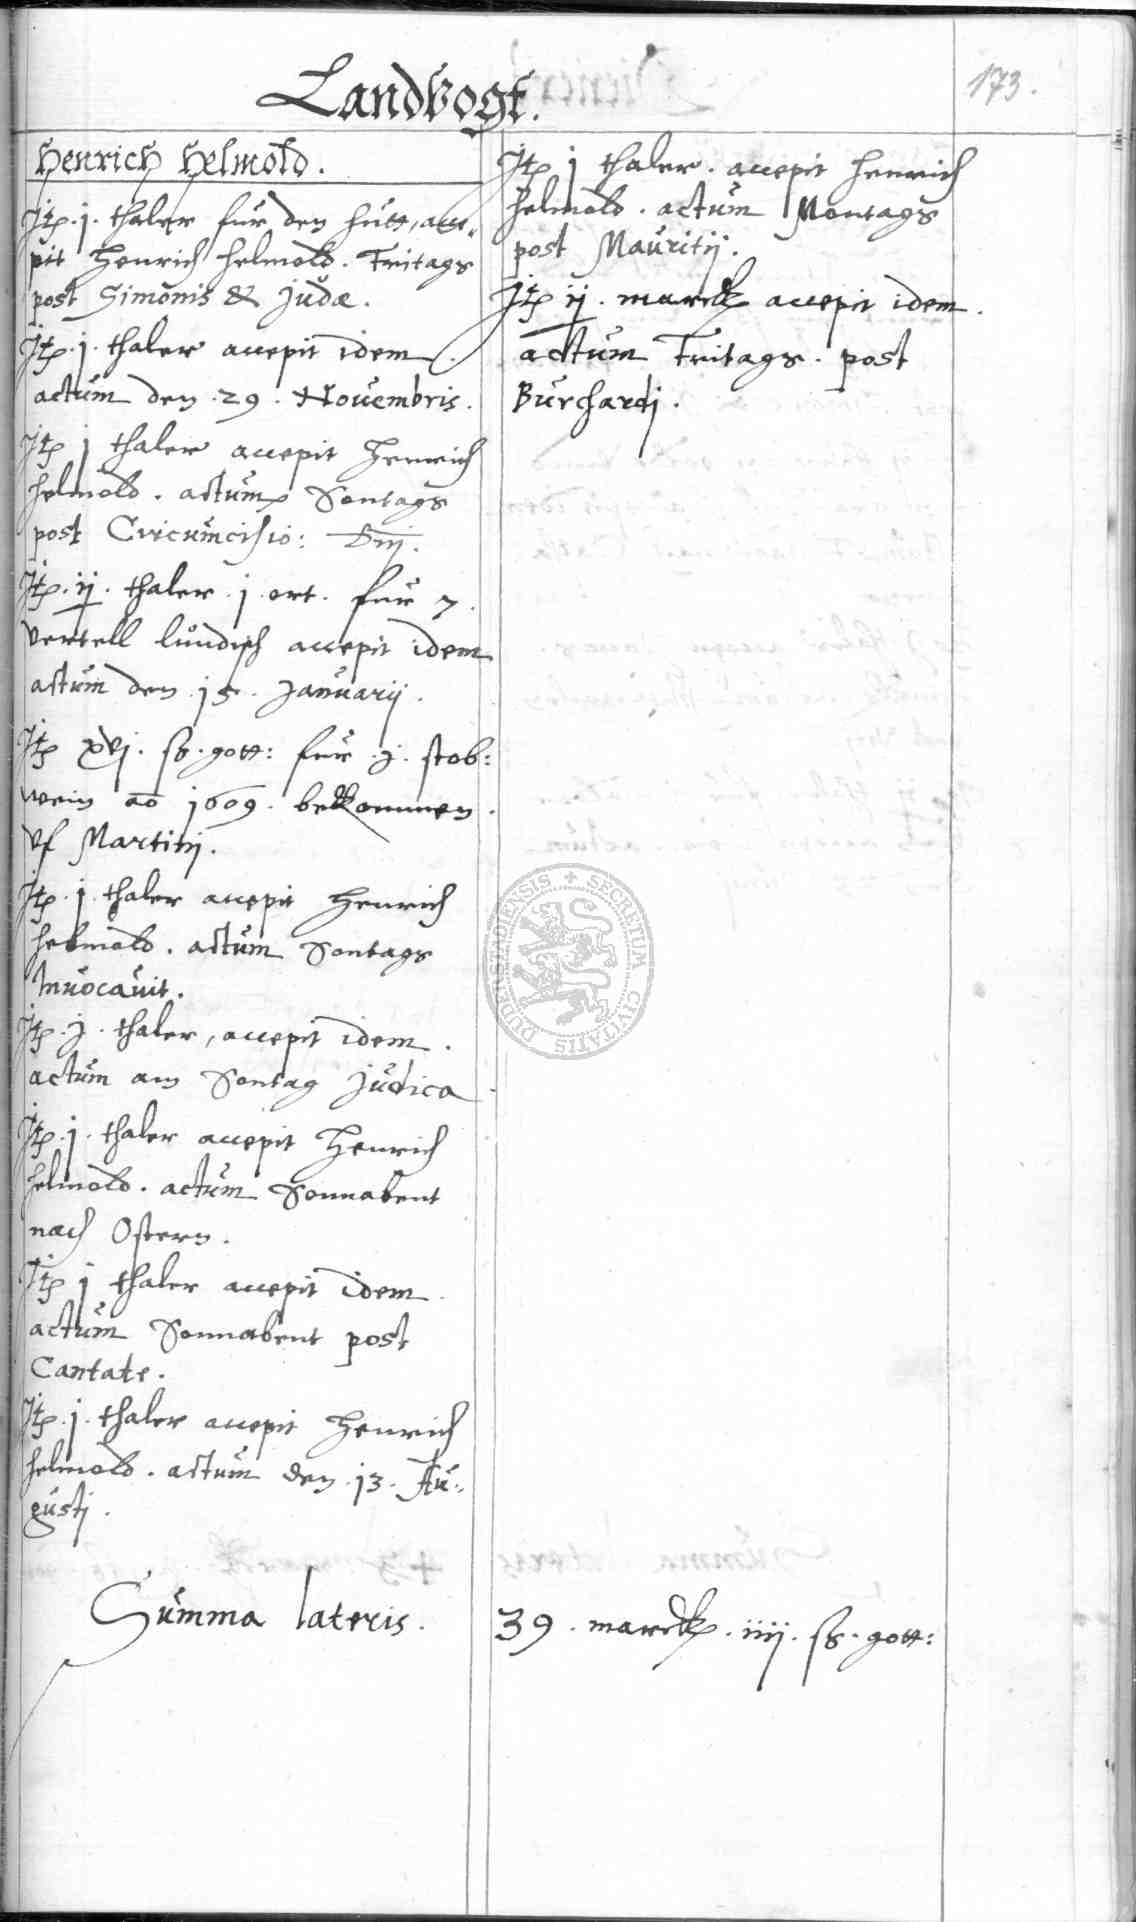 Landvogt.
173.
Henrich Helmold.
Itp. j. thaler für den hutt, acce„
pit Henrich Helmold. Freitags
post Simonis & Judæ.
Itp. j. thaler accepit idem.
actum den .29. Novembris.
Itp j thaler accepit Henrich
Helmold. actum Sontags
post Circumcisio: Dnj.
Itp. ij. thaler j ort. für 7.
vertell lündisch accepit idem
actum den 15. Januarij.
Itp xvj. ß. gott: für .j. stob:
wein ao 1609. bekommen.
vf Martinj.
Itp. j. thaler accepit Henrich
Helmold. actum Sontags
Invocavit.
Itp. j. thaler, accepit idem.
actum am Sontag Judica
Itp. j. thaler accepit Henrich
Helmold. actum Sonnabent
nach Ostern.
Itp j thaler accepit idem.
actum Sonnabent post
Cantate.
Itp. j. thaler accepit Henrich
Helmold. actum den .13. Au„
gustj.
Itp j thaler. accepit Henrich
Helmold. actum Montags
post Mauritij.
Itp ij. marck accepit idem.
actum Freitags. post
Burchardj.
SECRETUM CIVITATIS DUDERSTADIENSIS
Summa lateris. 39. marck. iiij. ß. gott: